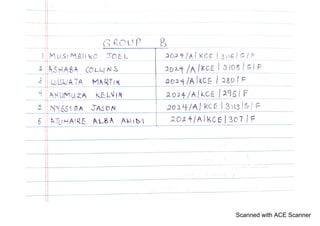 GROUP B
1 MUSIMENTO JOEL 2024/A/KCE/3116/G/F
2 ASHABA COLLINS 2024/A/KCE/3108/G/F
3 MARTIN 2024/A/KCE/280/F
4 AHUMUZA KELVIN 2024/A/KCE/295/F
5 NYESIGA JASON 2024/A/KCE/3113/G/F
6 ATUHAIRE ALBA AWIDI 2024/A/KCE/307/F
Scanned with ACE Scanner